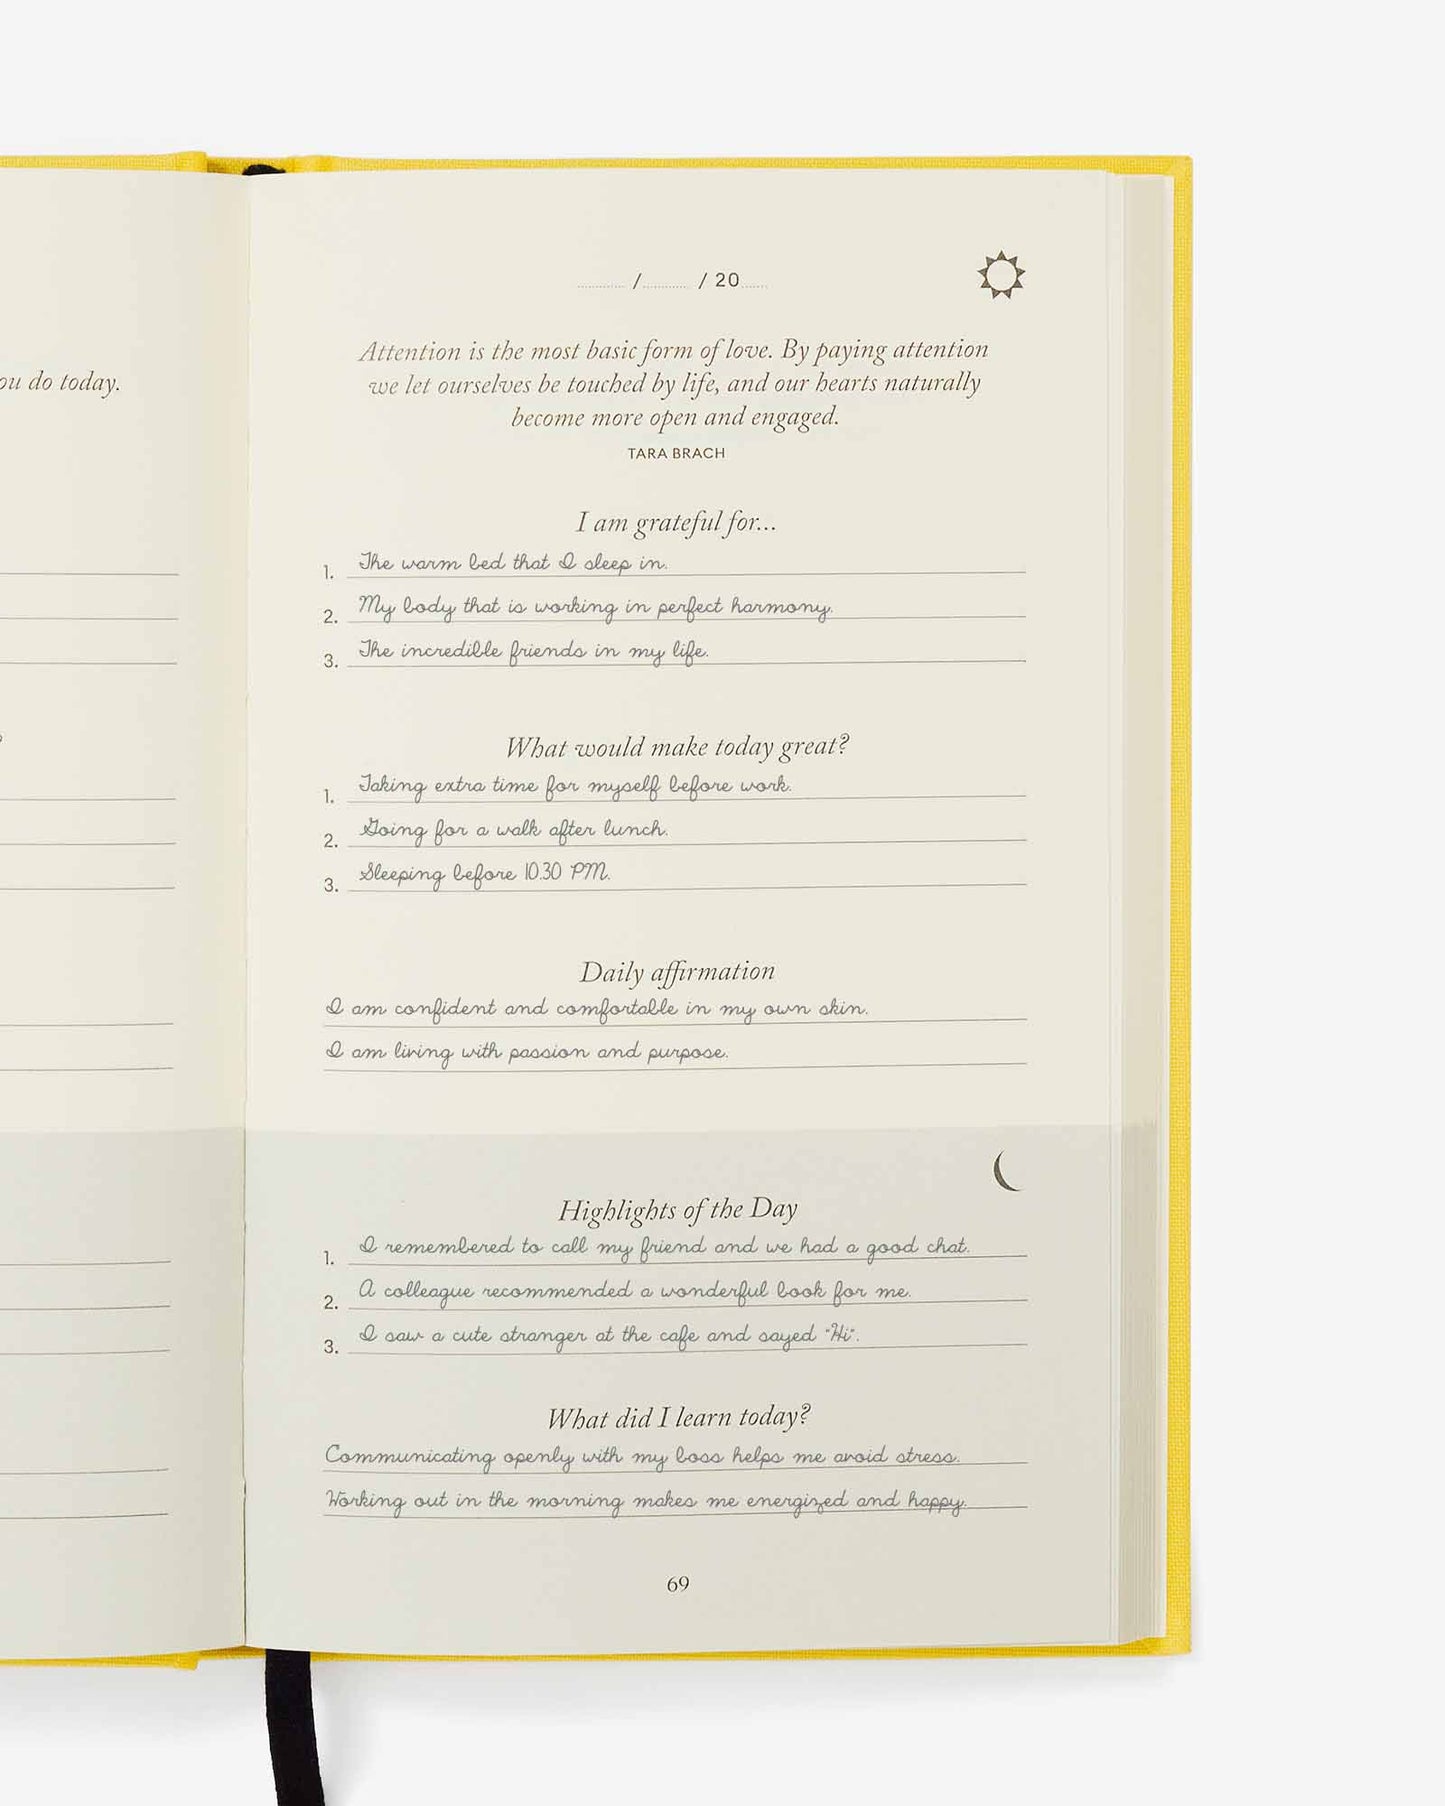 ou do today.
?
/ / 20
Attention is the most basic form of love. By paying attention
we let ourselves be touched by life, and our hearts naturally
become more open and engaged.
TARA BRACH
I am grateful for...
1. The warm bed that I sleep in.
2. My body that is working in perfect harmony.
3. The incredible friends in my life.
What would make today great?
1. Taking extra time for myself before work.
2. Going for a walk after lunch.
3. Sleeping before 10.30 PM.
Daily affirmation
I am confident and comfortable in my own skin.
I am living with passion and purpose.
Highlights of the Day
1. I remembered to call my friend and we had a good chat.
2. A colleague recommended a wonderful book for me.
3. I saw a cute stranger at the cafe and sayed "Hi".
What did I learn today?
Communicating openly with my boss helps me avoid stress.
Working out in the morning makes me energized and happy.
69